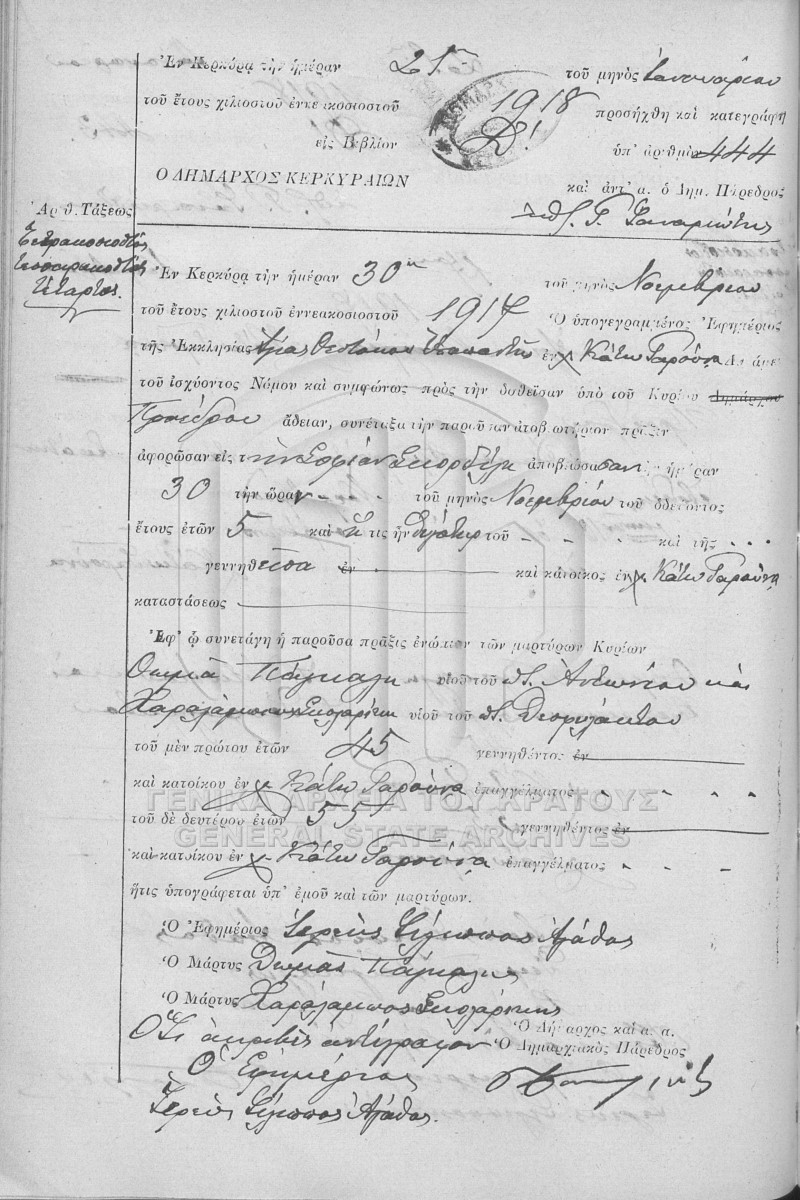 Ἐν Κερκύρᾳ τὴν ἡμέραν 25 τοῦ μηνὸς Ἰανουαρίου
τοῦ ἔτους χιλιοστοῦ ἐννεακοσιοστοῦ 1918 προσήχθη καὶ κατεγράφη
εἰς Βιβλίον Δ! ὑπ' ἀριθμὸν 444
Ο ΔΗΜΑΡΧΟΣ ΚΕΡΚΥΡΑΙΩΝ
καὶ ἀντ' α. ὁ Δημ. Πάρεδρος
Ἀριθ. Τάξεως
Τετρακοσιοστὸς
τεσσαρακοστὸς
τέταρτος.
Ἐν Κερκύρᾳ τὴν ἡμέραν 30ην τοῦ μηνὸς Νοεμβρίου
τοῦ ἔτους χιλιοστοῦ ἐννεακοσιοστοῦ 1917 Ὁ ὑπογεγραμμένος Ἐφημέριος
τῆς Ἐκκλησίας Ἁγίας Θεοτόκου ἐν χ. Κάτω Γαρούνα
τοῦ ἰσχύοντος Νόμου καὶ συμφώνως πρὸς τὴν δοθεῖσαν ὑπὸ τοῦ Κυρίου Δημάρχου
Προέδρου ἄδειαν, συνέταξα τὴν παροῦσαν ἀποβιωτήριον πρᾶξιν
ἀφορῶσαν εἰς τὴν Σοφίαν Σκορδίλη ἀποβιώσασαν ἡμέραν
30 τὴν ὥραν - - - τοῦ μηνὸς Νοεμβρίου τοῦ ὁδεύοντος
ἔτους ἐτῶν 5 καὶ ἥτις ἦν θυγάτηρ τοῦ - - - καὶ τῆς - - -
γεννηθεῖσα ἐν καὶ κάτοικος ἐν χ. Κάτω Γαρούνα
καταστάσεως
Ἐφ' ᾧ συνετάγη ἡ παροῦσα πρᾶξις ἐνώπιον τῶν μαρτύρων Κυρίων
Θωμᾶ Πάγκαλη υἱοῦ τοῦ Ἀντωνίου καὶ
Χαραλάμπους Σκολαρίκη υἱοῦ τοῦ Θεοφυλάκτου
τοῦ μὲν πρώτου ἐτῶν 45 γεννηθέντος ἐν
καὶ κατοίκου ἐν χ. Κάτω Γαρούνα ἐπαγγέλματος
ΓΕΝΙΚΑ ΑΡΧΕΙΑ ΤΟΥ ΚΡΑΤΟΥΣ
τοῦ δὲ δευτέρου ἐτῶν 55 γεννηθέντος ἐν
GENERAL STATE ARCHIVES
καὶ κατοίκου ἐν χ. Κάτω Γαρούνα ἐπαγγέλματος
ἥτις ὑπογράφεται ὑπ' ἐμοῦ καὶ τῶν μαρτύρων.
Ὁ Ἐφημέριος Ἱερεὺς Φίλιππος Ἀγάθος
Ὁ Μάρτυς Θωμᾶς Πάγκαλης
Ὁ Μάρτυς Χαράλαμπος Σκολαρίκης
Ὁ Δήμαρχος καὶ α. α.
ἀκριβὲς ἀντίγραφον Ὁ Δημαρχιακὸς Πάρεδρος
Ὁ Ἐφημέριος
Ἱερεὺς Φίλιππος Ἀγάθος.